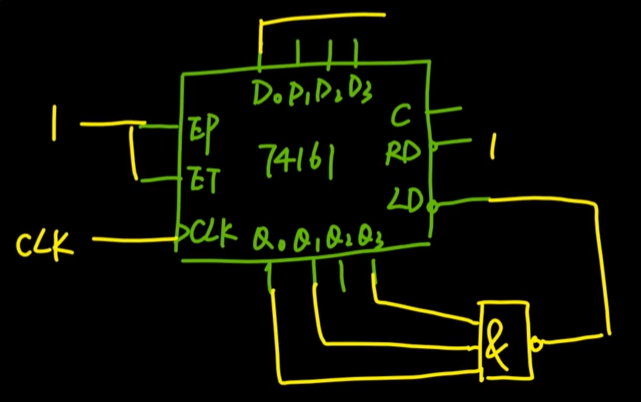 D₀ D₁ D₂ D₃
1 EP C
74161 RD 1
ET LD
CLK CLK Q₀ Q₁ Q₂ Q₃
&